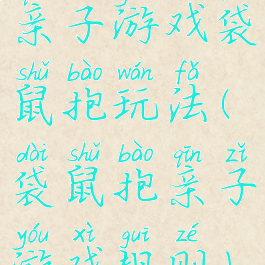 亲子游戏袋
shǔ bào wán fǎ
鼠抱玩法(
dài shǔ bào qīn zǐ
袋鼠抱亲子
yóu xì guī zé
游戏规则)